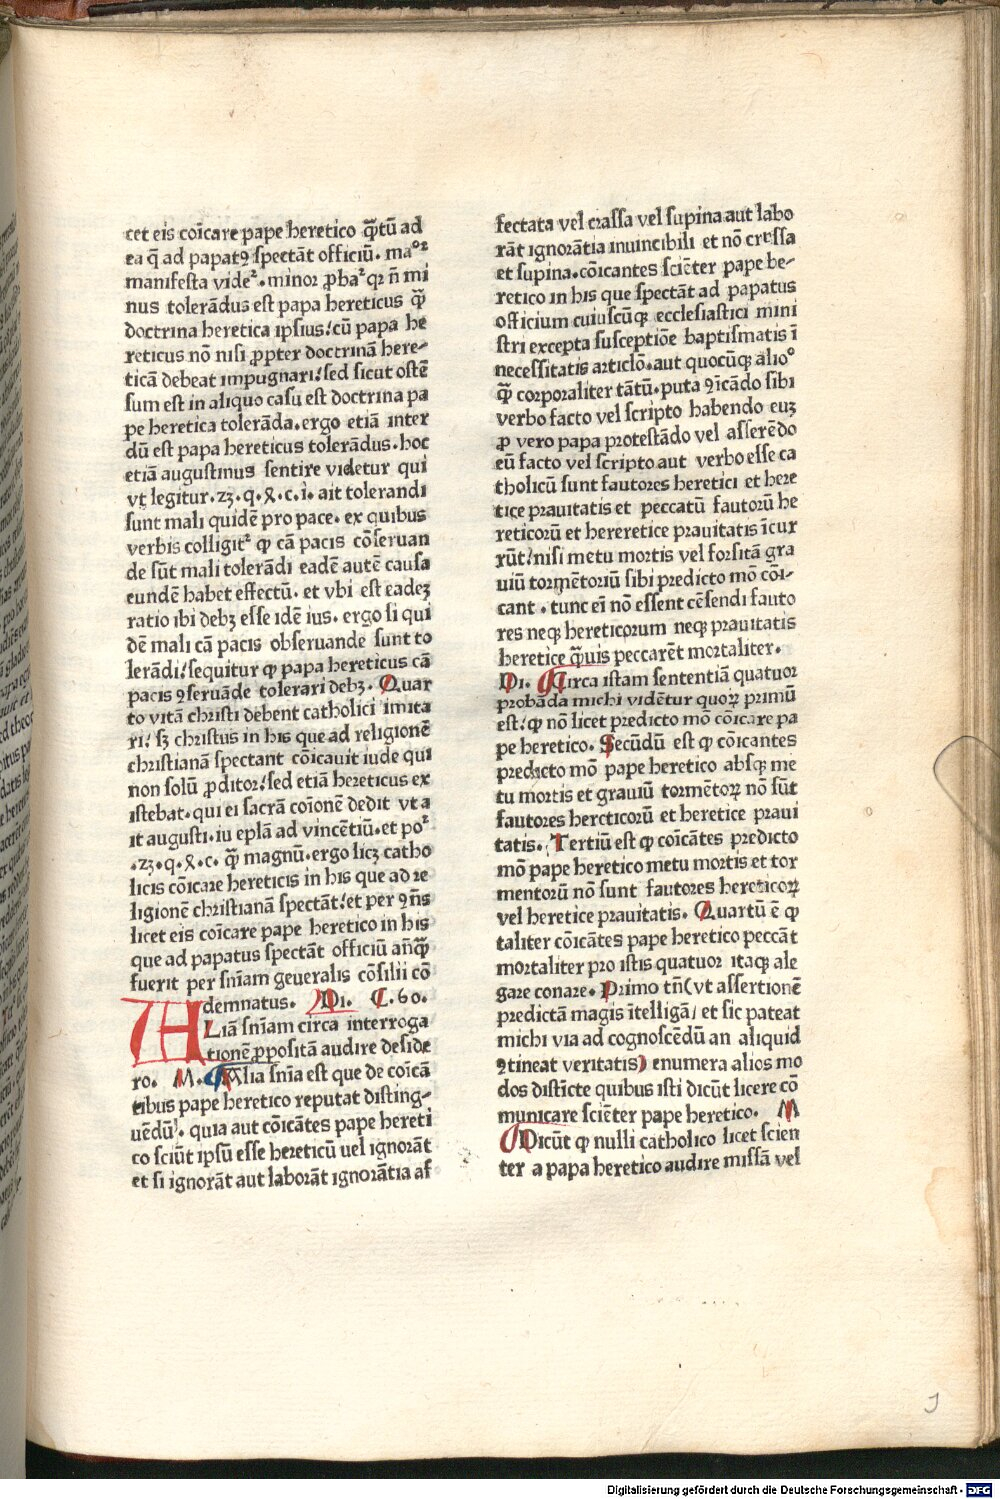 cet eis coīcare pape heretico q̄tū ad
ea q̄ ad papatꝰ spectāt officiū. maᵒꝛ
manifesta videꝛ. minor ꝓbaꝛ qꝛ n̄ mi
nus tolerādus est papa hereticus q̄
doctrina heretica ipsius: cū papa he
reticus nō nisi ꝓpter doctrinā here-
ticā debeat impugnari: sed sicut ostē
sum est in aliquo casu est doctrina pa
pe heretica tolerāda. ergo etiā inter
dū est papa hereticus tolerādus. hoc
etiā augustinus sentire videtur qui
vt legitur. z3. q. x̄. c. i. ait tolerandi
sunt mali quidē pro pace. ex quibus
verbis colligitꝛ ꝙ cā pacis cōseruan
de sūt mali tolerādi eadē autē causa
eundē habet effectū. et vbi est eadeꝫ
ratio ibi debꝫ esse idē ius. ergo si qui
dē mali cā pacis obseruande sunt to
lerādi: sequitur ꝙ papa hereticus cā
pacis ꝯseruāde tolerari debꝫ. Quar
to vitā christi debent catholici imita
ri: sꝫ christus in his que ad religionē
christianā spectant cōicauit iude qui
non solū ꝓditor: sed etiā hereticus ex
istebat. qui ei sacrā cōionē dedit vt a
it augusti. iu eplā ad vincētiū. et poꝛ
.z3. q. x̄. c. q̄ magnū. ergo licꝫ catho
licis cōicare hereticis in his que ad re
ligionē christianā spectāt: et per ꝯn̄s
licet eis coīcare pape heretico in his
que ad papatus spectāt officiū an̄q̄
fuerit per sn̄iam geueralis cōsilii cō
demnatus. Di. C. 60.
ALiā sn̄iam circa interroga
tionē ꝓpositā audire deside
ro. M. Alia sn̄ia est que de coīcā
tibus pape heretico reputat disting-
uēdū. quia aut cōicātes pape hereti
co sciūt ipsū esse hereticū uel ignorāt
et si ignorāt aut laborāt ignorātia af
fectata vel crassa vel supina aut labo
rāt ignorātia inuincibili et nō crussa
et supina. cōicantes sciēter pape he-
retico in his que spectāt ad papatus
officium cuiuscūqꝫ ecclesiastici mini
stri excepta susceptiōe baptismatis ī
necessitatis articlō. aut quocūqꝫ alioᵒ
q̄ corporaliter tātū. puta ꝯicādo sibi
verbo facto vel scripto habendo euꝫ
ꝓ vero papa protestādo vel asserēdo
eū facto vel scripto aut verbo esse ca
tholicū sunt fautores heretici et here
tice prauitatis et peccatū fautorū he
reticorū et hereretice prauitatis īcur
rūt: nisi metu mortis vel forsitā gra
uiū tormētoriū sibi predicto mō cōi-
cant. tunc ei nō essent cēsendi fauto
res neqꝫ hereticorum neqꝫ prauitatis
heretice q̄uis peccarēt mortaliter.
Di. Circa istam sententiā quatuor
probāda michi vidētur quoꝝ primū
est: ꝙ nō licet predicto mō cōicare pa
pe heretico. Secūdū est ꝙ cōicantes
predicto mō pape heretico absqꝫ me
tu mortis et grauiū tormētoꝝ nō sūt
fautores hercticorū et heretice praui
tatis. Tertiū est ꝙ coīcātes predicto
mō pape heretico metu mortis et tor
mentorū nō sunt fautores hereticoꝝ
vel heretice prauitatis. Quartū ē ꝙ
taliter cōicātes pape heretico peccāt
mortaliter pro istis quatuor itaqꝫ ale
gare conare. Primo tn̄(vt assertionē
predictā magis ītelligā/ et sic pateat
michi via ad cognoscēdū an aliquid
ꝯtineat veritatis) enumera alios mo
dos distīcte quibus isti dicūt licere cō
municare sciēter pape heretico. M
Dicūt ꝙ nulli catholico licet scien
ter a papa heretico audire missā vel
J
Digitalisierung gefördert durch die Deutsche Forschungsgemeinschaft - DFG